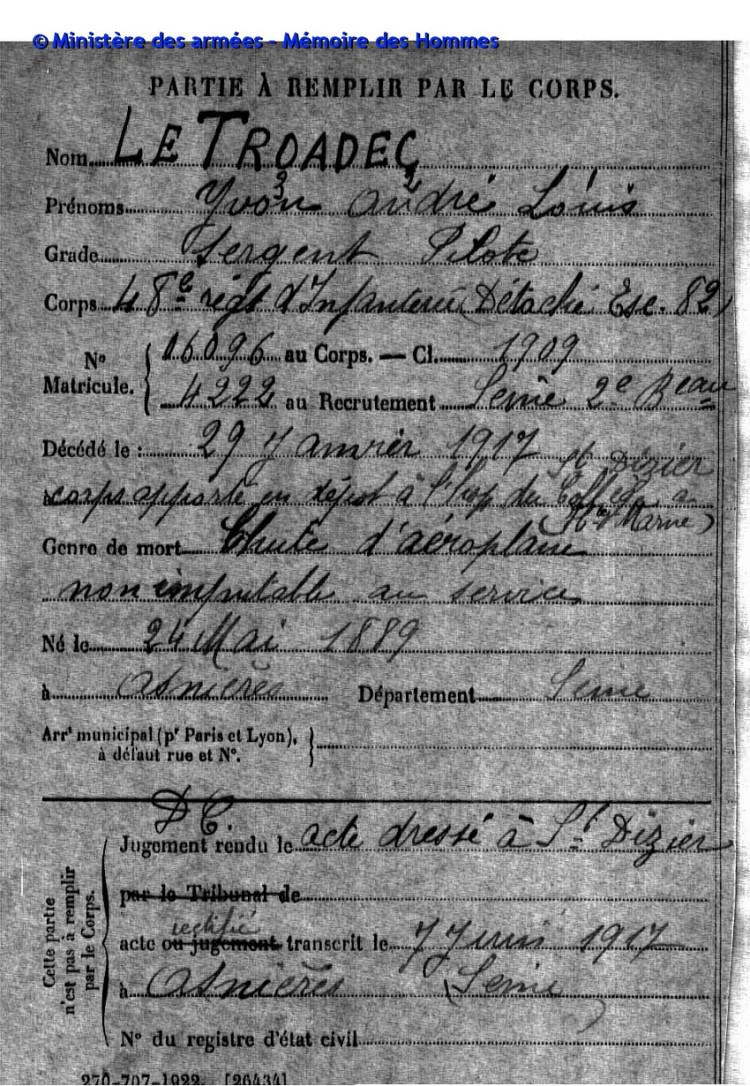 © Ministère des armées - Mémoire des Hommes
PARTIE À REMPLIR PAR LE CORPS.
Nom LE TROADEC
Prénoms Yvon André Louis
Grade Sergent Pilote
Corps 48e régt d'Infanterie (Détaché Esc. 82)
No Matricule. { 16096 au Corps. — Cl. 1909
4222 au Recrutement Seine 2e Beau
Décédé le : 29 Janvier 1917
St Dizier
corps apporté en dépôt à l'hôp du Collège à
(Hte Marne)
Genre de mort Chute d'aéroplane
non imputable au service
Né le 24 Mai 1889
à Asnières Département Seine
Arrt municipal (pr Paris et Lyon),
à défaut rue et No.
DC.
Cette partie n'est pas à remplir par le Corps.
Jugement rendu le acte dressé à St Dizier
par le Tribunal de
rectifié
acte ou jugement transcrit le 7 Juin 1917
à Asnières (Seine)
No du registre d'état civil
270-707-1922. [26434]